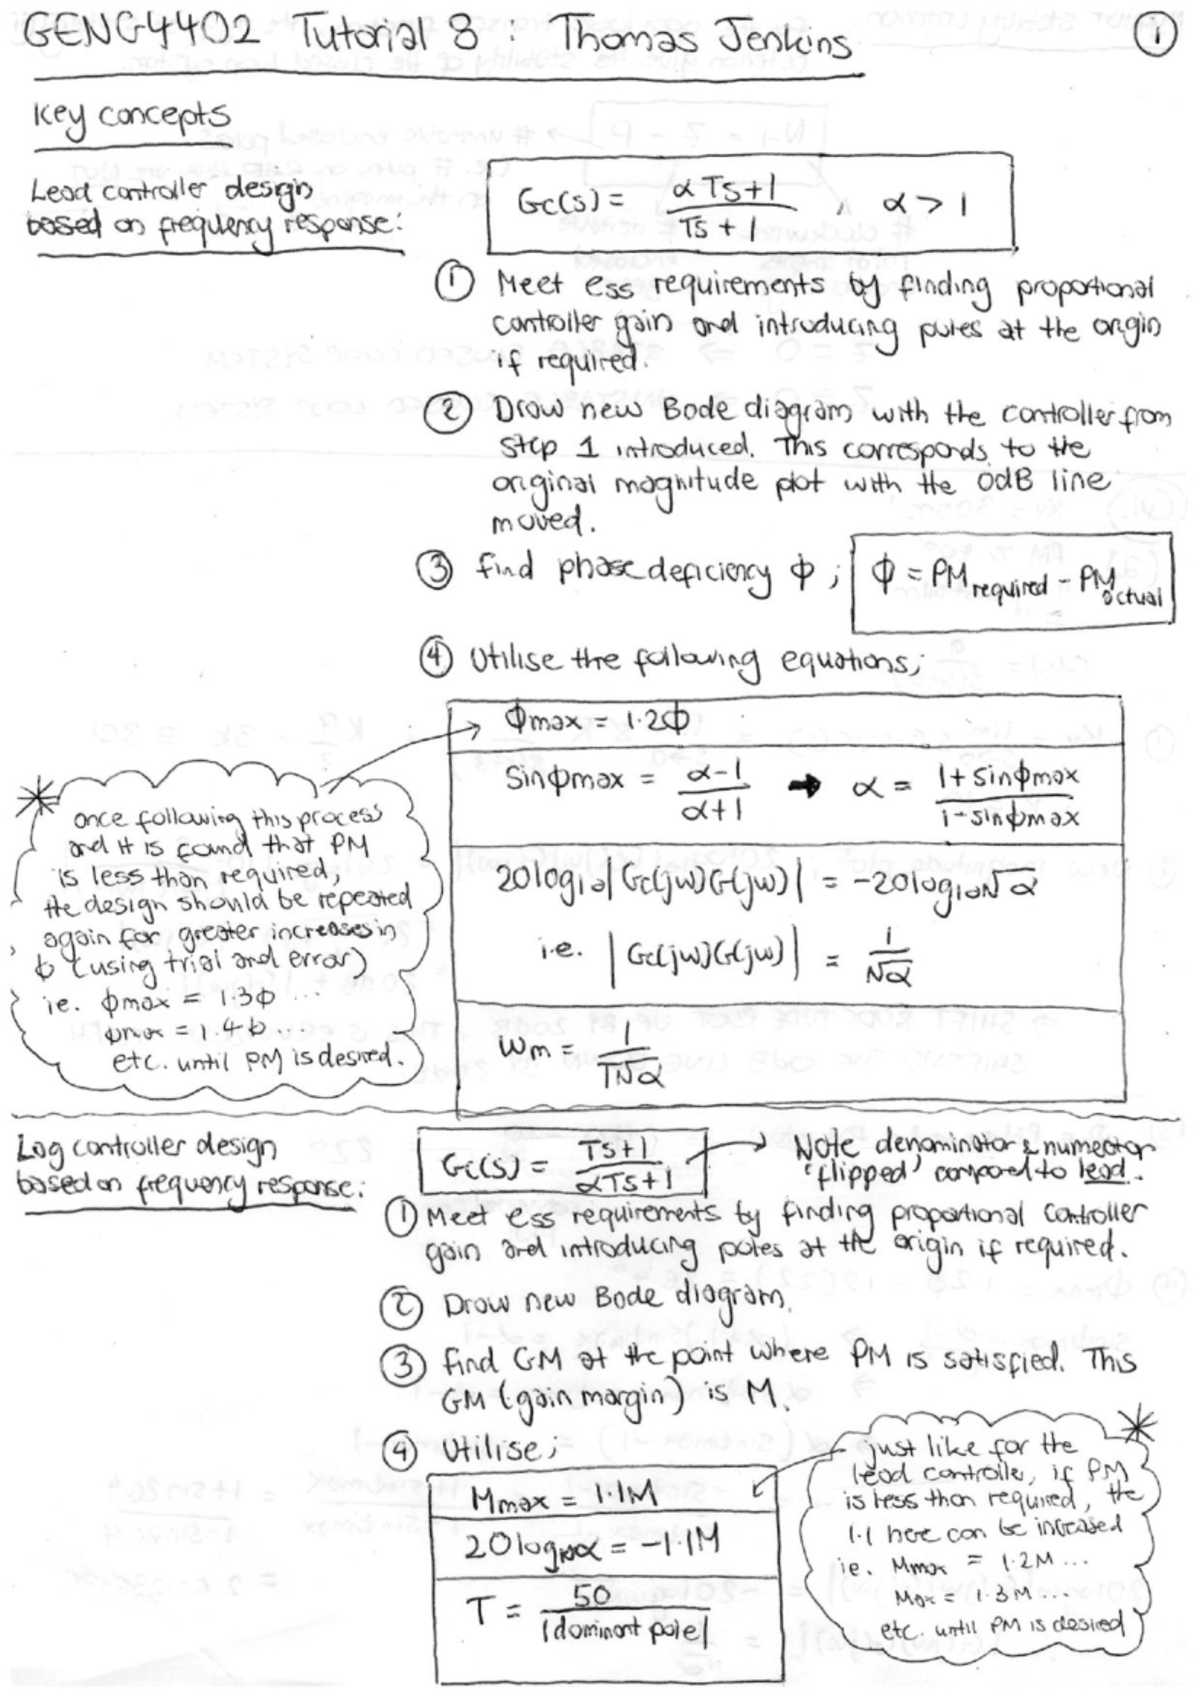 GENG4402 Tutorial 8 : Thomas Jenkins
①
Key concepts
Lead controller design
based on frequency response:
Gc(s) = αTs+1 / Ts+1 , α > 1
① Meet ess requirements by finding proportional
controller gain and introducing poles at the origin
if required.
② Draw new Bode diagram, with the controller from
step 1 introduced. This corresponds to the
original magnitude plot with the 0dB line
moved.
③ find phase deficiency ϕ ; ϕ = PM required - PM actual
④ Utilise the following equations;
ϕmax = 1.2ϕ
sinϕmax = α-1 / α+1 → α = 1+sinϕmax / 1-sinϕmax
20log10|Gc(jw)G(jw)| = -20log10√α
i.e. |Gc(jw)G(jw)| = 1/√α
wm = 1 / T√α
once following this process
and it is found that PM
is less than required,
the design should be repeated
again for greater increases in
ϕ (using trial and error)
ie. ϕmax = 1.3ϕ ...
ϕmax = 1.4ϕ ...
etc. until PM is desired.
Lag controller design
based on frequency response:
Gc(s) = Ts+1 / αTs+1
→ Note denominator & numerator
'flipped' compared to lead.
① Meet ess requirements by finding proportional controller
gain and introducing poles at the origin if required.
② Draw new Bode diagram.
③ find GM at the point where PM is satisfied. This
GM (gain margin) is M.
④ Utilise;
Mmax = 1.1M
20log10α = -1.1M
T = 50 / |dominant pole|
just like for the
lead controller, if PM
is less than required, the
1.1 here can be increased
ie. Mmax = 1.2M ...
Max = 1.3M ...
etc. until PM is desired